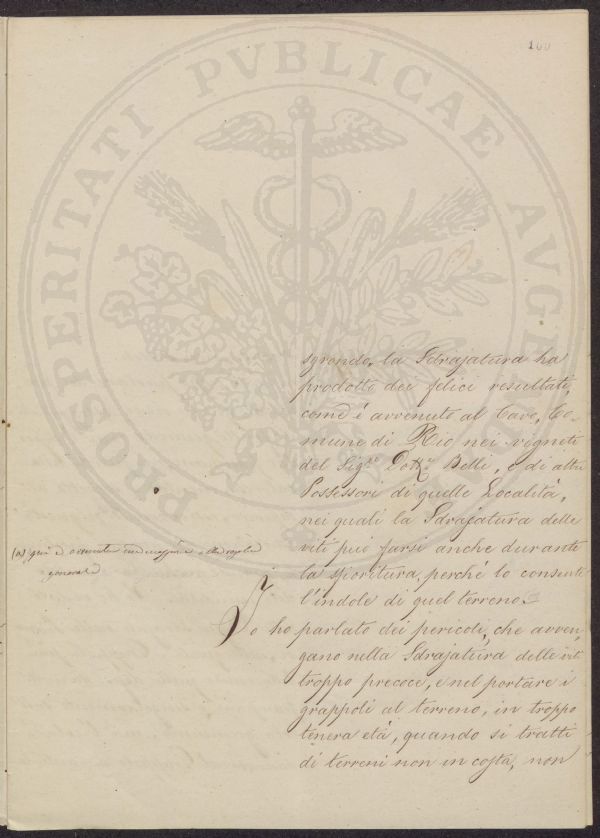 160
PROSPERITATI PVBLICAE AVGENDAE
sgrondo, la Sdrajatura ha
prodotto dei felici resultati,
come è avvenuto al Cavo, Co-
mune di Rio nei vigneti
del Sigre Dotte Belli, e di altri
Possessori di quelle Località,
nei quali la Sdrajatura delle
viti può farsi anche durante
la fioritura, perchè lo consente
l'indole di quel terreno.
(a) qui è avvenuta
generale
Io ho parlato dei pericoli, che avven,
gano nella Sdrajatura delle viti
troppo precoce, e nel portare i
grappoli al terreno, in troppo
tenera età, quando si tratti
di terreni non in costa, non